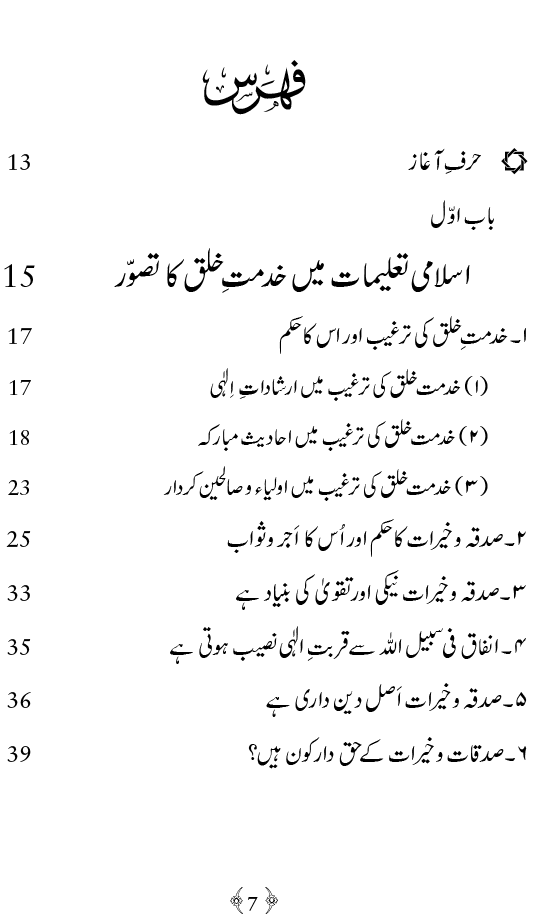 فہرس
حرفِ آغاز 13
باب اوّل
اسلامی تعلیمات میں خدمتِ خلق کا تصوّر 15
۱۔ خدمتِ خلق کی ترغیب اور اس کا حکم 17
(۱) خدمت خلق کی ترغیب میں ارشاداتِ اِلٰہی 17
(۲) خدمت خلق کی ترغیب میں احادیث مبارکہ 18
(۳) خدمت خلق کی ترغیب میں اولیاء و صالحین کردار 23
۲۔صدقہ و خیرات کا حکم اور اُس کا اَجر وثواب 25
۳۔صدقہ و خیرات نیکی اور تقویٰ کی بنیاد ہے 33
۴۔ انفاق فی سبیل اللہ سے قربتِ الٰہی نصیب ہوتی ہے 35
۵۔صدقہ و خیرات اَصل دین داری ہے 36
۶۔صدقات و خیرات کے حق دار کون ہیں؟ 39
﴿7﴾